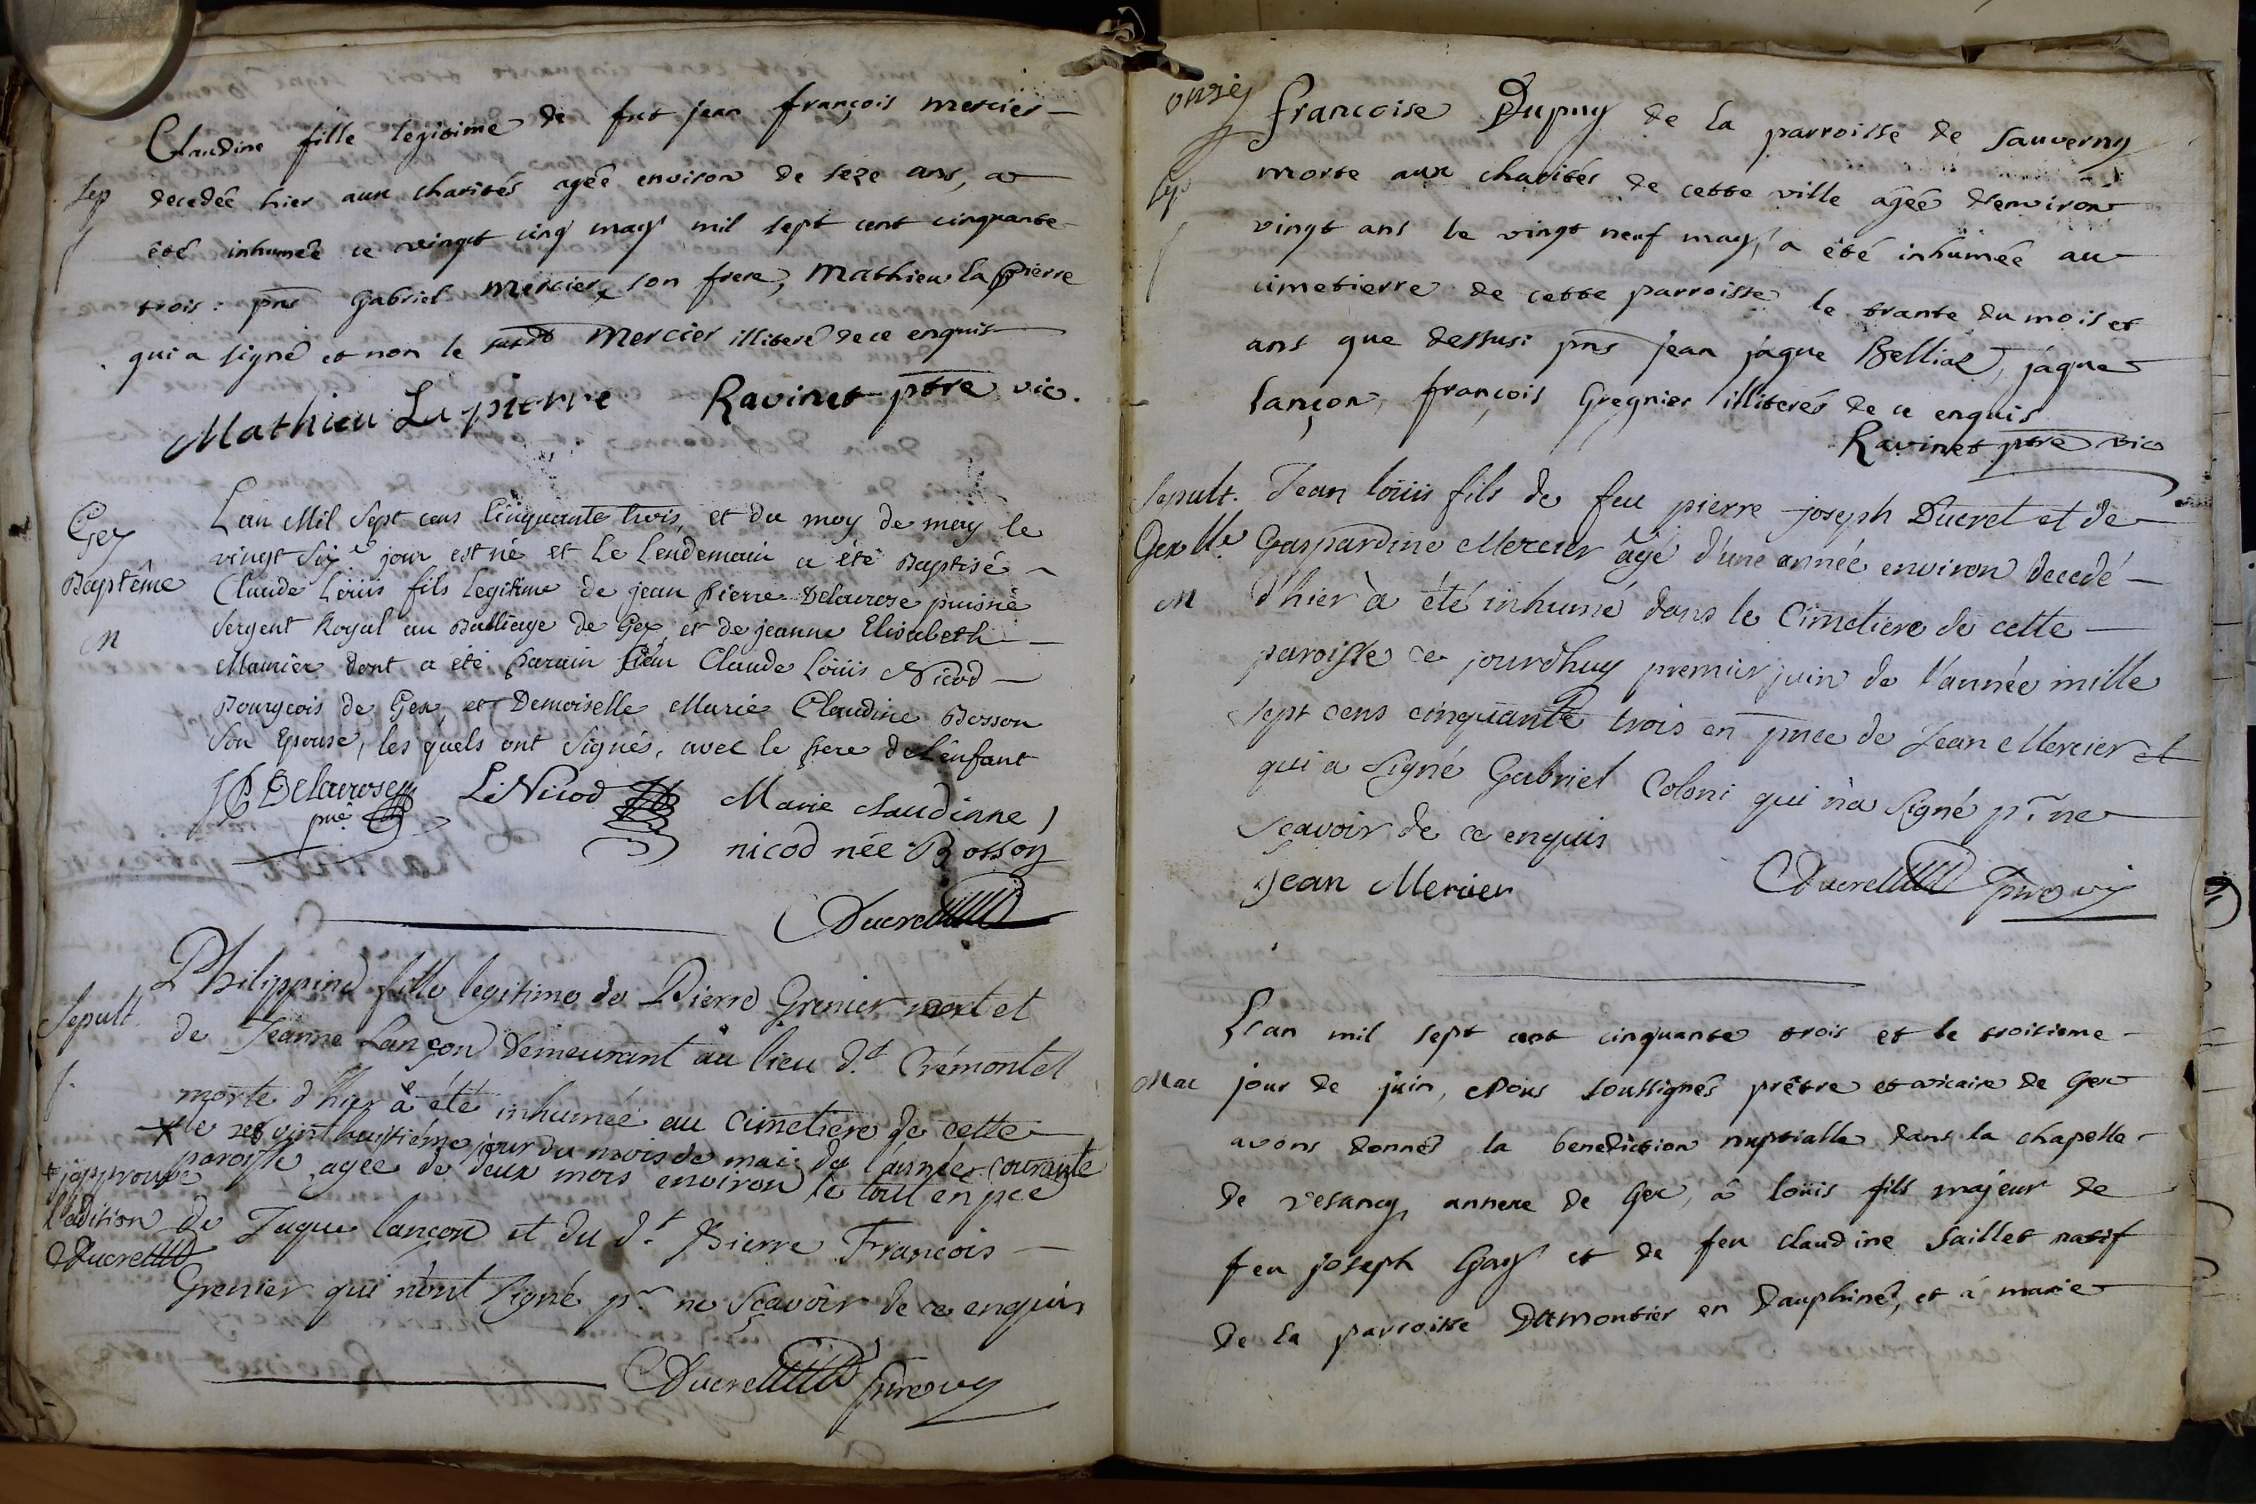 Claudine fille legitime de fut jean françois mercier
Sep decedée hier aux charités agée environ de seze ans, a
f été inhumée ce vingt cinq may mil sept cent cinquante
trois : pns Gabriel Mercier son frere, Mathieu la pierre
qui a signé et non le susdt Mercier illiteré de ce enquis
Mathieu La pierre Ravinet ptre vic.
Gex
Baptême
M
L'an Mil Sept cens Cinquante trois, et du moy de may le
vingt Six e jour est né et le lendemain a été Baptisé
Claude Loüis fils legitime de jean pierre Delavrose puisné
Sergent Royal au Balliage de Gex, et de jeanne Elisabeth
Maunier dont a été parain sieur Claude Loüis Nicod
Bourgeois de Gex et Demoiselle Marie Claudine Bosson
Son Epouse, les quels ont signés, avec le pere de l'enfant
JP Delavrose LNicod Marie Claudinne
pné nicod née Bosson
Ducret
Philippine fille legitime de Pierre Grenier mort et
Sepult. de Jeanne Lançon demeurant au lieu d.t Crémontet
f. morte d'hier à été inhumée au Cimetiere de cette
le vint huitiéme jour du mois de mai de l'année courante
paroisse agée de deux mois environ le tout en pce
+ japprouve
l'adition
Ducret
de Jaque lançon et du d.t Pierre François
Grenier qui n'ont signé p.r ne sçavoir de ce enquis
Ducret ptre vic
onze
françoise Dupuy de la parroisse de Sauverny
Sep morte aux charités de cette ville agée d'environ
f vingt ans le vingt neuf may, a été inhumée au
cimetierre de cette parroisse le trante du mois et
ans que dessus: pns jean jaque Belliat, jaque
lançon, françois Gregnier illiterés de ce enquis
Ravinet ptre vic
Sepult. Jean loüis fils de feu pierre joseph Ducret et de
Gex lle Gaspardine Mercier âgé d'une année environ decedé
M d'hier à été inhumé dans le Cimetiere de cette
paroisse ce jourdhuy premier juin de l'année mille
sept cens cinquante trois en pnce de Jean Mercier et
qui a signé Gabriel Coloni qui n'a signé p.r ne
sçavoir de ce enquis
Jean Mercier Ducret ptre vic
L'an mil sept cent cinquante trois et le troisieme
Mar jour de juin, Nous soussignés prêtre et vicaire de Gex
avons donnés la benediction nuptialle dans la chapelle
de vesancy, annexe de Gex, à loüis fils majeur de
feu joseph Gay et de feu claudine Saillet natif
de la parroisse Damontier en Dauphiné, et à marie